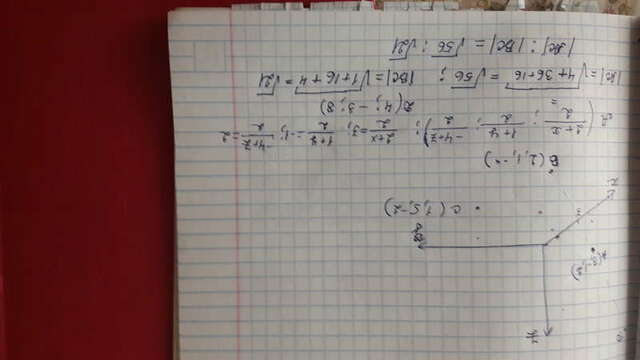 z
y
x
C (1, 5, -2)
B (2, 1, -4)
A (2+x/2; 1+y/2; -4+z/2); 2+x/2 = 3; 1+y/2 = -1; -4+z/2 = 2
D (4; -3; 8)
|AC| = √4+36+16 = √56; |BC| = √1+16+4 = √21
|AC| : |BC| = √56 : √21